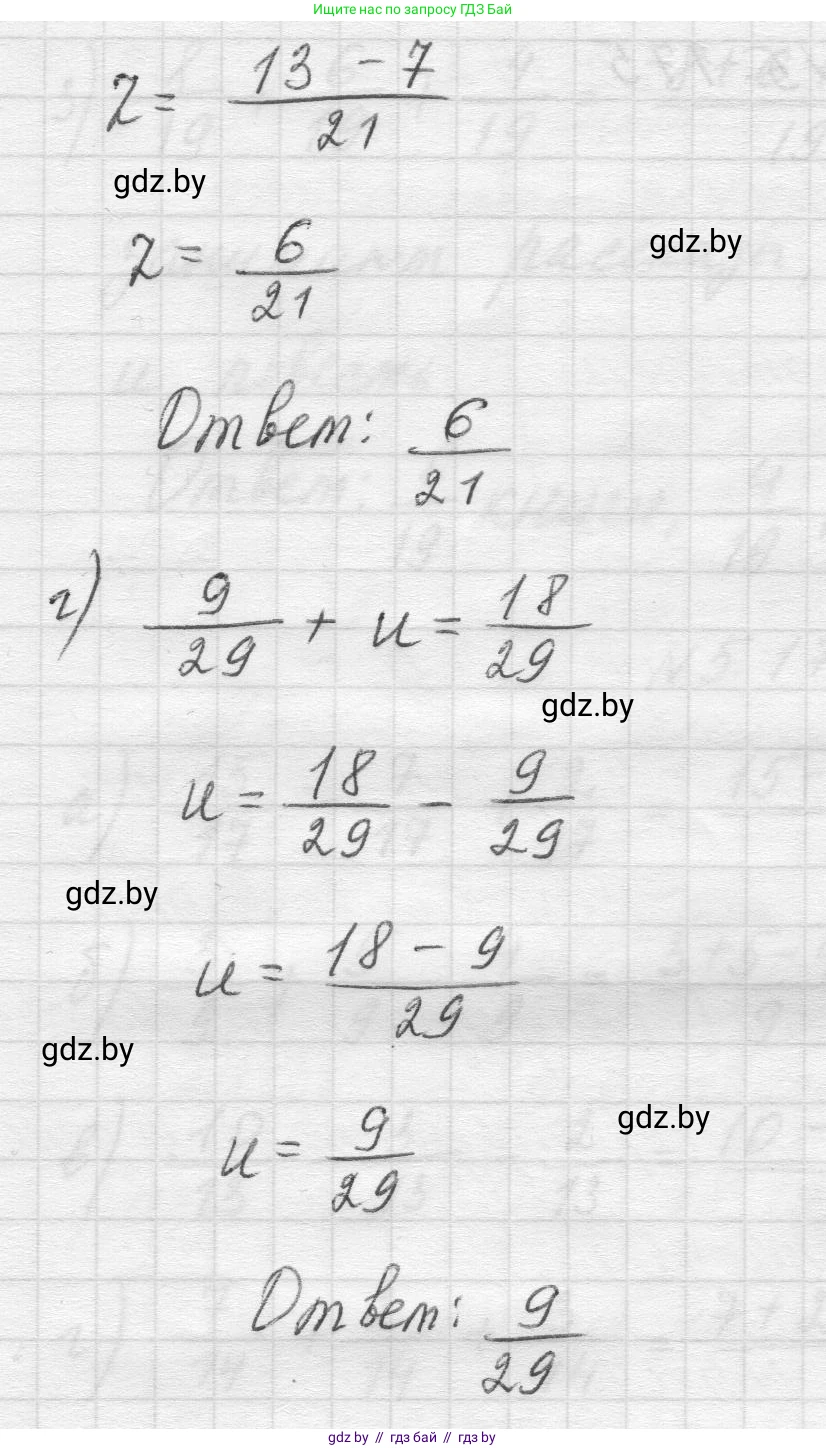 Ищите нас по запросу ГДЗ Бай
z = (13 − 7)/21
gdz.by
gdz.by
z = 6/21
Ответ: 6/21
г) 9/29 + u = 18/29
gdz.by
u = 18/29 − 9/29
gdz.by
u = (18 − 9)/29
gdz.by
gdz.by
u = 9/29
Ответ: 9/29
gdz.by // гдз бай // гдз by